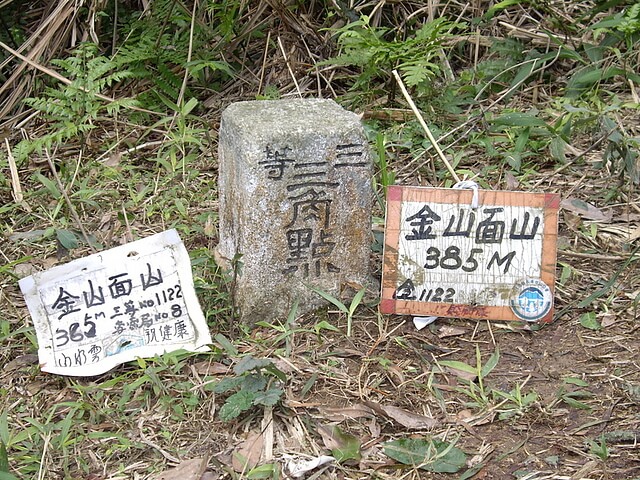 三等
三角點
金山面山
385M 三等No1122
No8
祝健康
金山面山
385M
1122